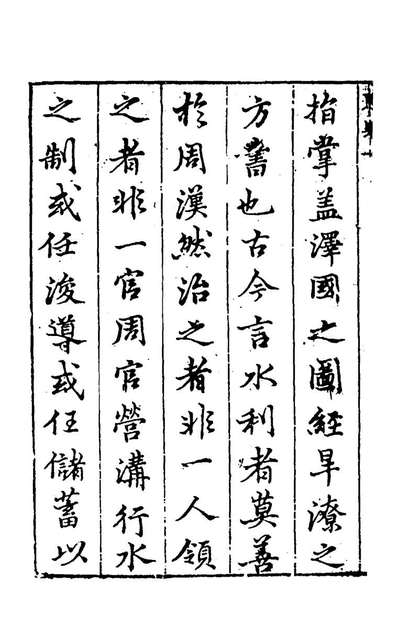 指掌蓋澤國之圖經旱潦之
方書也古今言水利者莫善
於周漢然治之者非一人領
之者非一官周官營溝行水
之制或任浚導或任儲蓄以